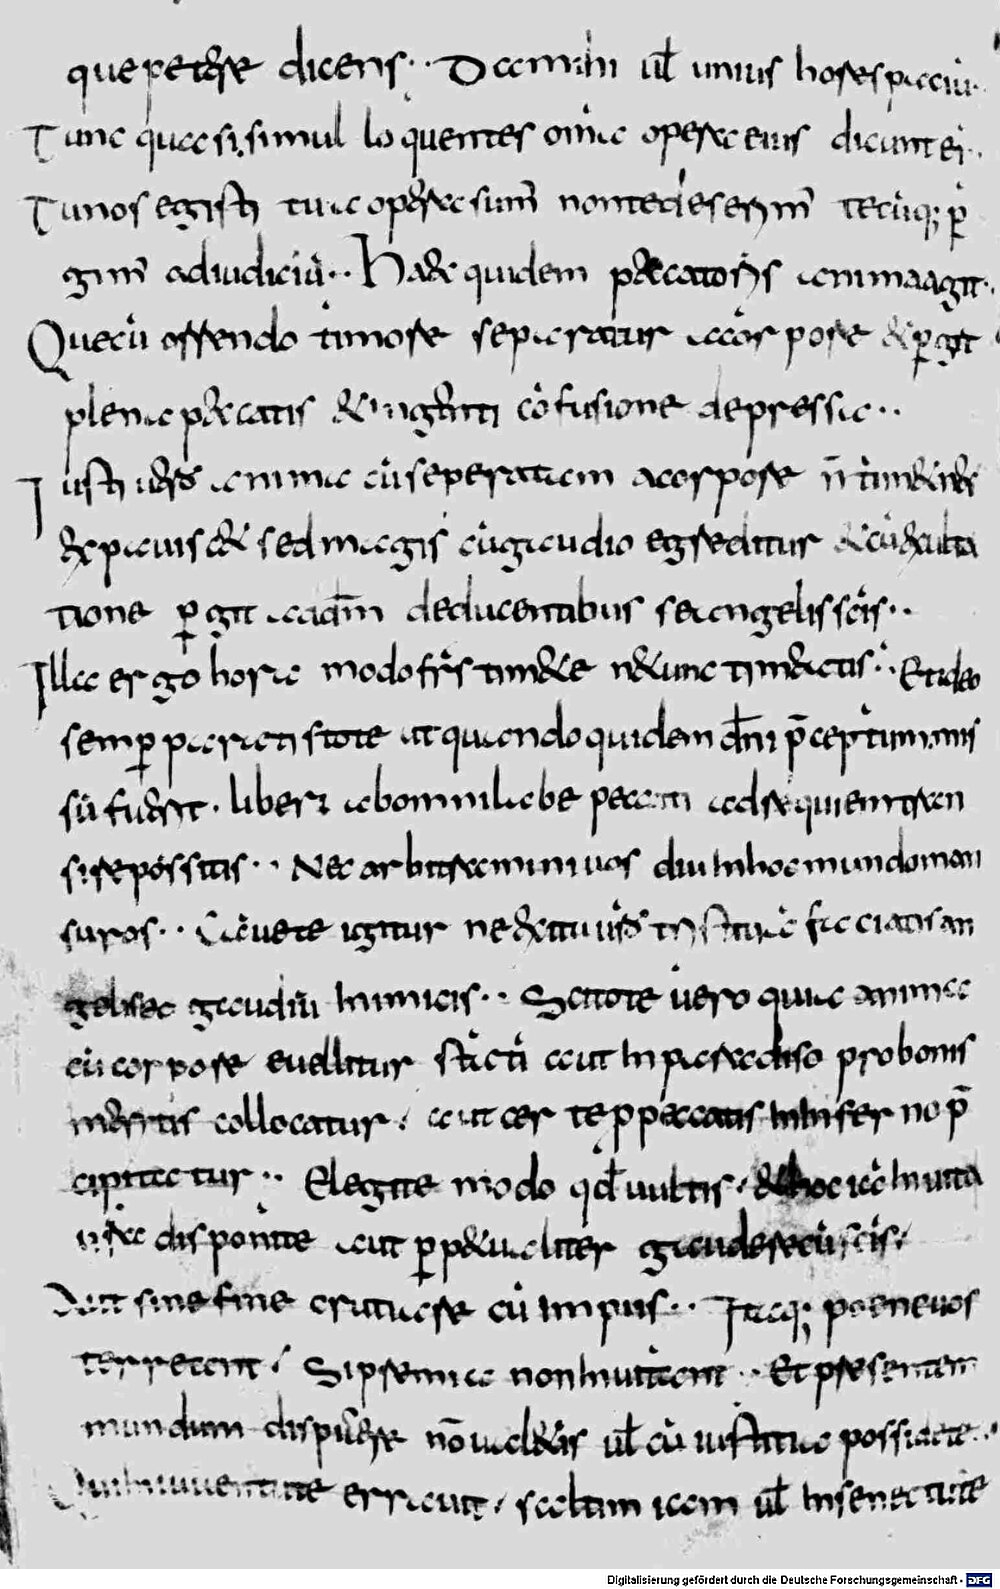 que petere dicens·· Da mihi ul unius horespaciu··
Tunc quasi simul loquentes omia opera eius dicunt ei··
Tu nos egisti tua opera sum non te deserem tecuq; p
gim ad iudiciu·· Haec quidem peccatoris anima agit··
Que cu offendo timore separatur a corpore & pgit
plena peccatis & ingenti cofusione depressa··
Iusti uero anima cu seperatam a corpore n timet nec
expauiscet sed magis cu gaudio egreditur & cu exulta
tione pgit ad dm deducentibus se angelis scis··
Illa ergo hora modo frs timete n tunc timeatis·· Et ideo
semp parati stote ut quando quidem dni pceptum
su fuerit· liberi abominabe peccati
sire possitis·· Nec arbitramini uos diu In hoc mundo man
suros·· Cauete igitur ne exitu uro tristitia faciatis an
gelis ac gaudiu Inimicis·· Scitote uero quia anima
cu corpore euellitur stati aut In paradiso pro bonis
meritis collocatur· aut certe p peccatis In Inferno p
cipitatur·· Elegite modo qd uultis· & hoc iac In uita
ura disponite aut p petualiter gaudere cu scis·
Aut sine fine cruciare cu impiis·· Itaq; poene uos
terreant· Si premia non Inuitant·· Et presentem
mundum dispicere no ualetis ul cu iustitia possidete··
Qui In iuuentute errauit· saltim iam ul In senectute